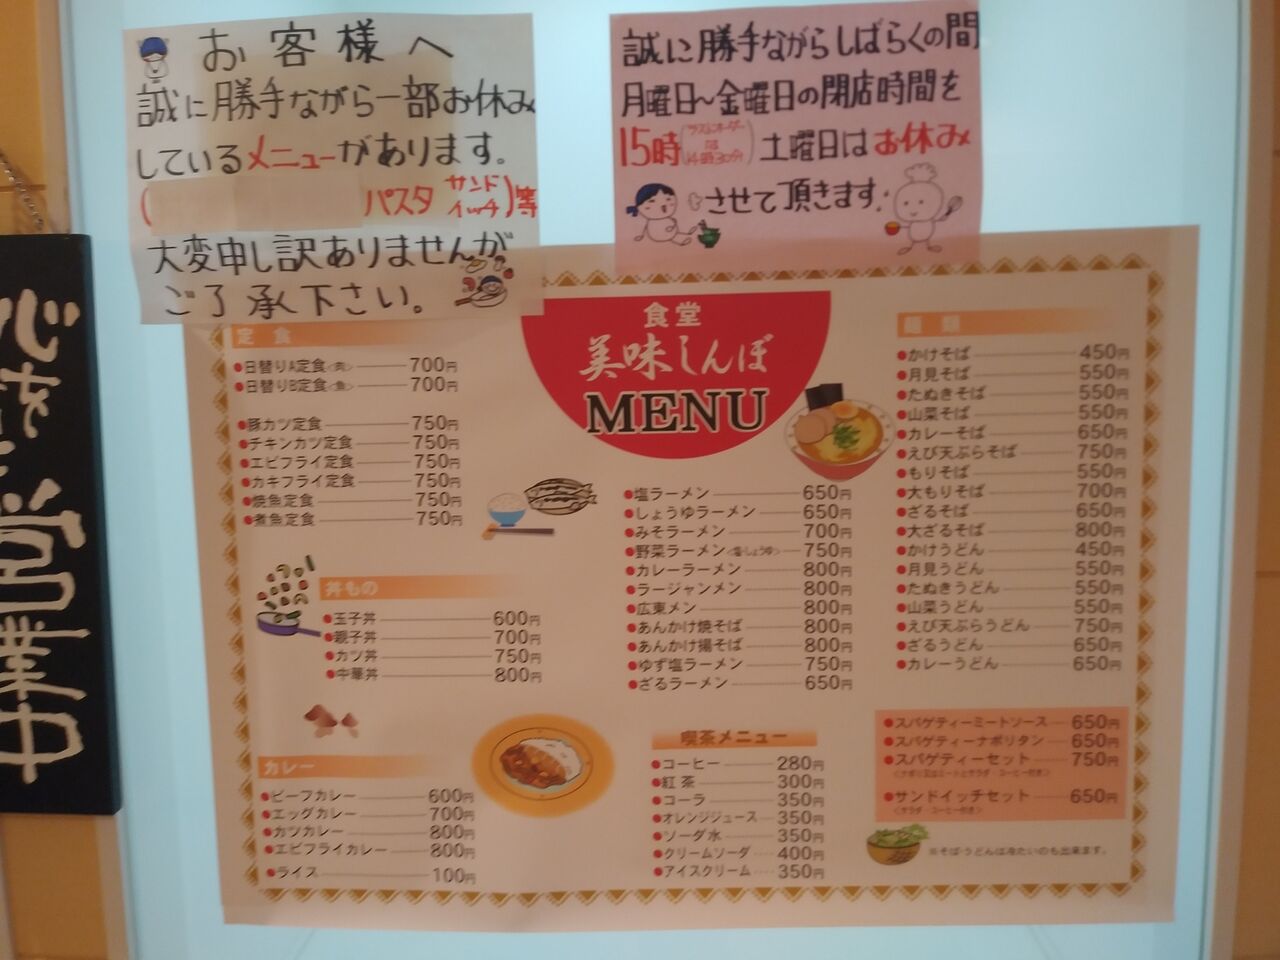 お客様へ
誠に勝手ながら一部お休み
しているメニューがあります。
( パスタ サンドイッチ)等
大変申し訳ありませんが
ご了承下さい。
誠に勝手ながらしばらくの間
月曜日~金曜日の閉店時間を
15時(ラストオーダーは14時30分)土曜日はお休み
させて頂きます。
営業中
食堂
美味しんぼ
MENU
定食
日替りA定食<肉> 700円
日替りB定食<魚> 700円
豚カツ定食 750円
チキンカツ定食 750円
エビフライ定食 750円
カキフライ定食 750円
焼魚定食 750円
煮魚定食 750円
丼もの
玉子丼 600円
親子丼 700円
カツ丼 750円
中華丼 800円
カレー
ビーフカレー 600円
エッグカレー 700円
カツカレー 800円
エビフライカレー 800円
ライス 100円
塩ラーメン 650円
しょうゆラーメン 650円
みそラーメン 700円
野菜ラーメン<塩・しょうゆ> 750円
カレーラーメン 800円
ラージャンメン 800円
広東メン 800円
あんかけ焼そば 800円
あんかけ揚そば 800円
ゆず塩ラーメン 750円
ざるラーメン 650円
喫茶メニュー
コーヒー 280円
紅茶 300円
コーラ 350円
オレンジジュース 350円
ソーダ水 350円
クリームソーダ 400円
アイスクリーム 350円
麺類
かけそば 450円
月見そば 550円
たぬきそば 550円
山菜そば 550円
カレーそば 650円
えび天ぷらそば 750円
もりそば 550円
大もりそば 700円
ざるそば 650円
大ざるそば 800円
かけうどん 450円
月見うどん 550円
たぬきうどん 550円
山菜うどん 550円
えび天ぷらうどん 750円
ざるうどん 650円
カレーうどん 650円
スパゲティーミートソース 650円
スパゲティーナポリタン 650円
スパゲティーセット 750円
<ナポリ又はミートとサラダ・コーヒー付き>
サンドイッチセット 650円
<サラダ・コーヒー付き>
※そば・うどんは冷たいのも出来ます。